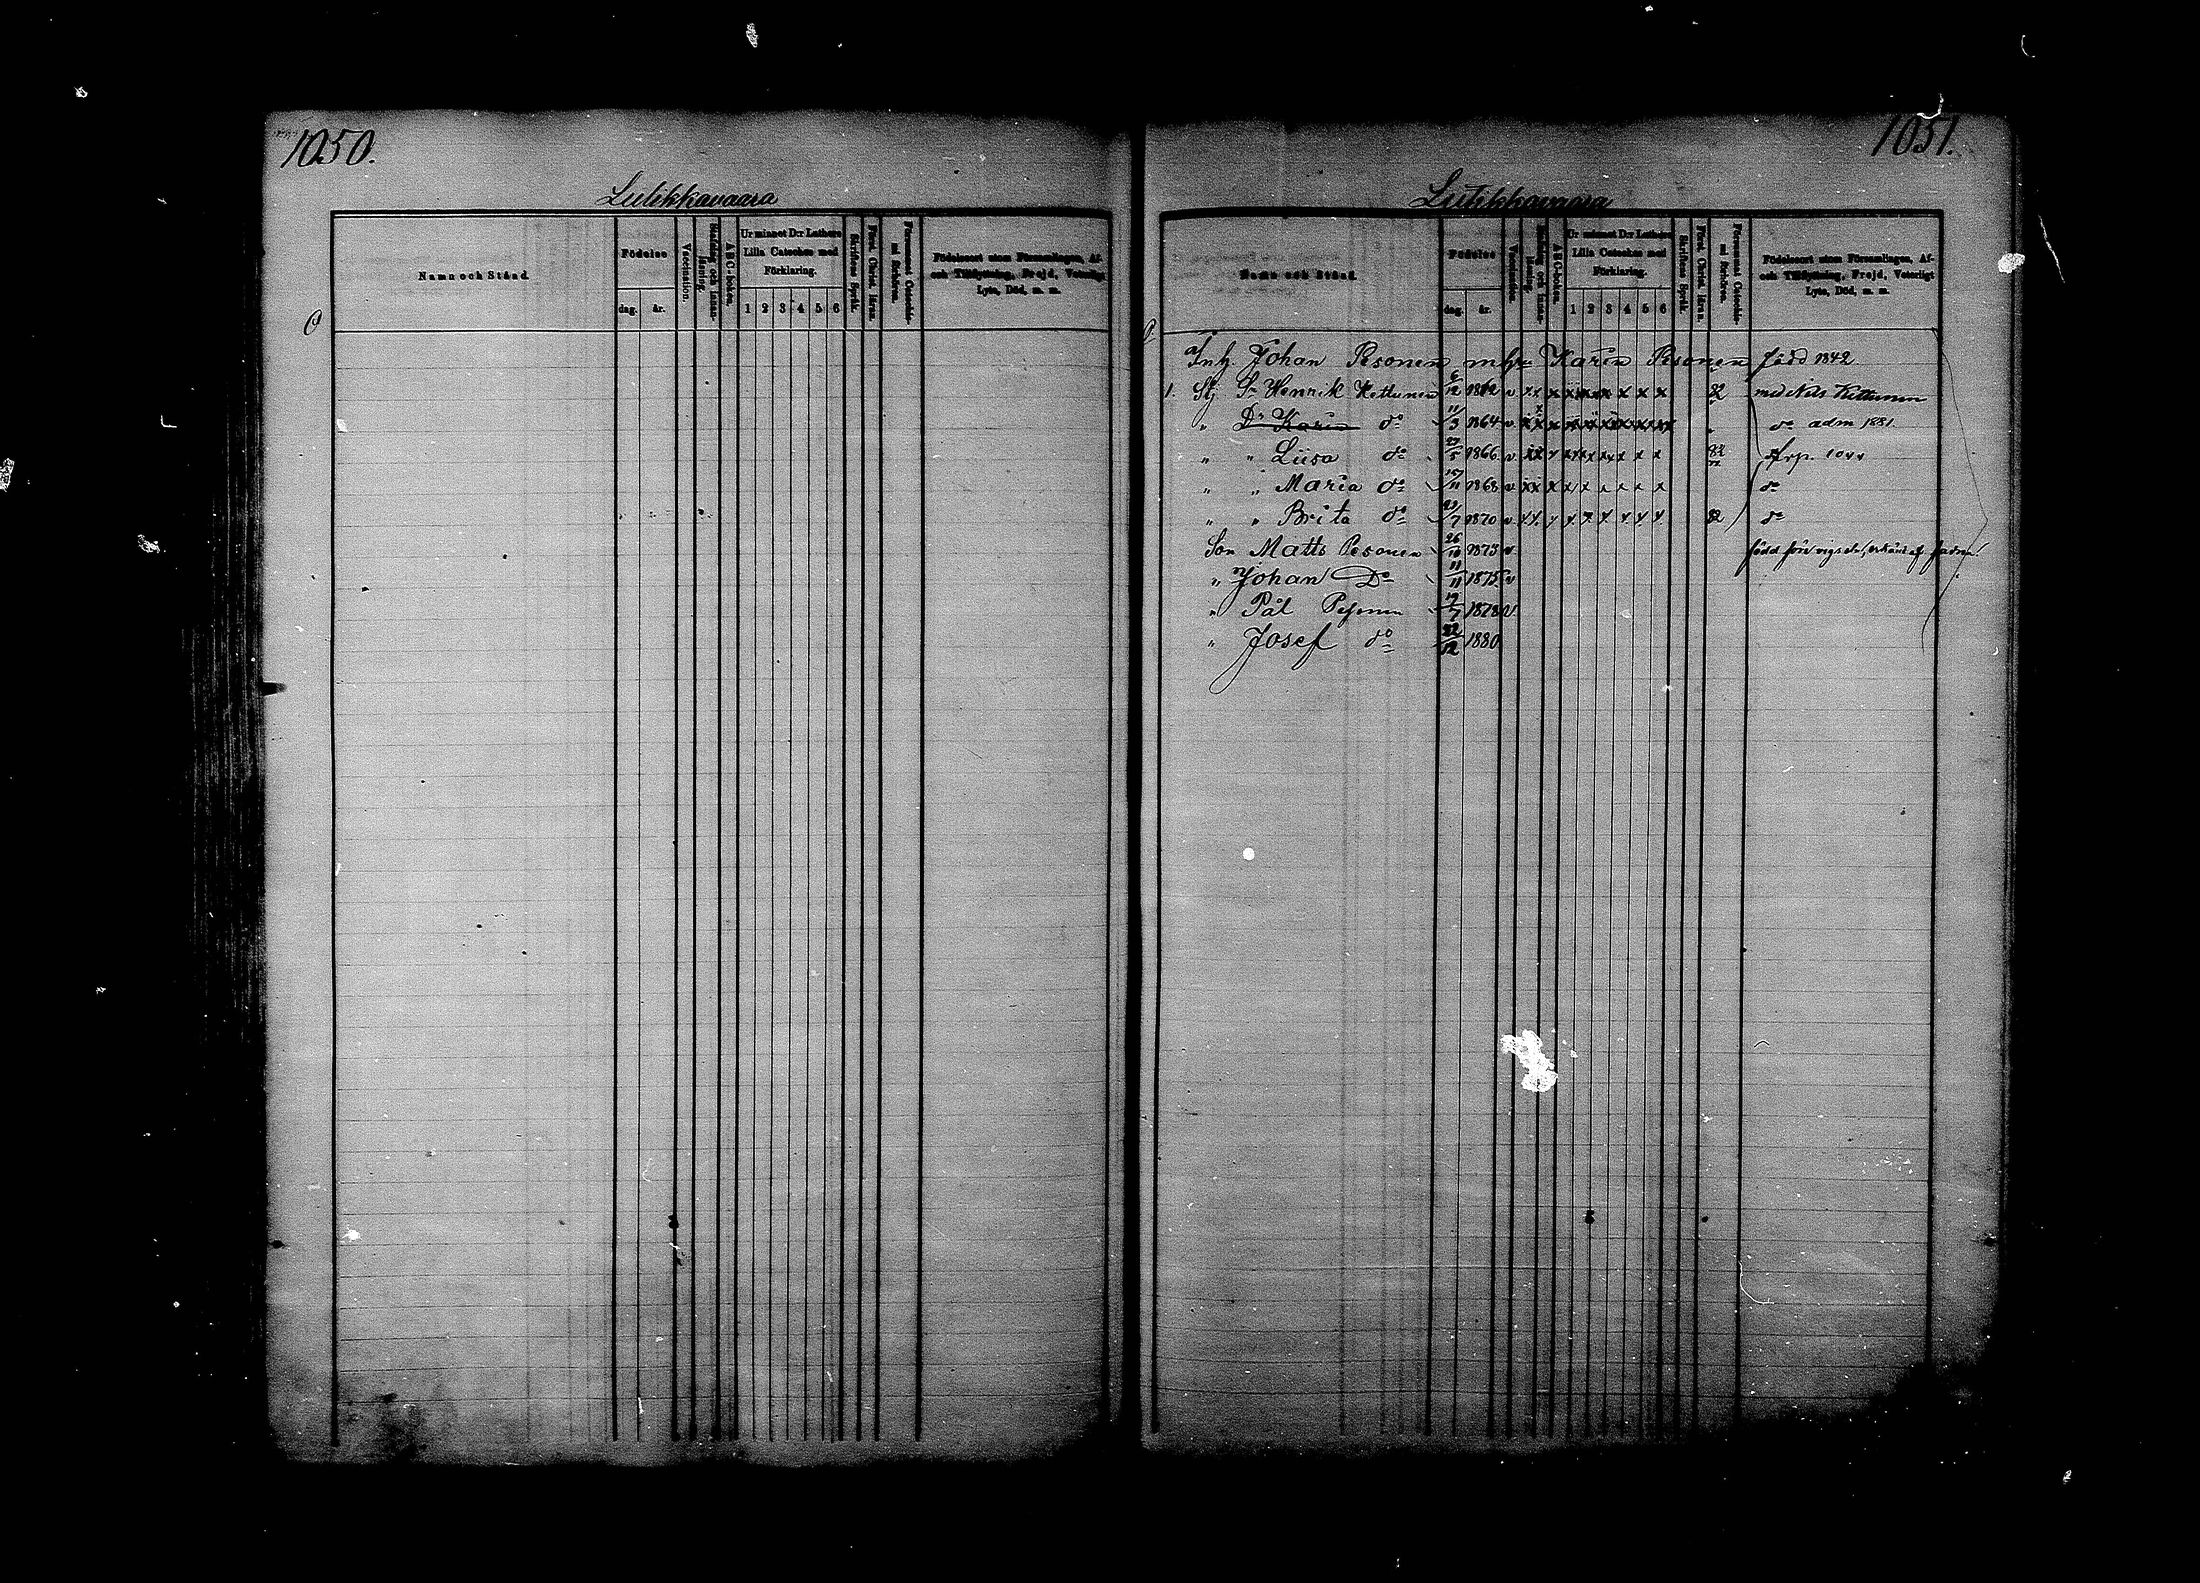 1050.
Lulikkavaara
Namn och Stånd.
Födelse
dag. år.
Vaccination.
A B C-boken.
Ur minnet D:r Luthers
Lilla Cateches med
Förklaring.
1 2 3 4 5 6
Skriftens Språk.
Förest. Christ. läran.
Försummat Catechis-
mi förhören.
Födelseort utom Församlingen, Af-
och Tillflyttning, Frejd, Veterligt
Lyte, Död, m. m.
1051.
Lulikkavaara
Namn och Stånd.
Födelse
dag. år.
Vaccination.
A B C-boken.
Ur minnet D:r Luthers
Lilla Cateches med
Förklaring.
1 2 3 4 5 6
Skriftens Språk.
Förest. Christ. läran.
Försummat Catechis-
mi förhören.
Födelseort utom Församlingen, Af-
och Tillflyttning, Frejd, Veterligt
Lyte, Död, m. m.
Inh. Johan Pesonen m hu Karin Pesonen född 1842
1. Stj Sn Henrik Kettunen 6/12 1862 v x x x x x x x x x 82 med Nils Kettunen
" Dr Karin do 11/3 1864 v x x x x x x x x x do adm 1881
" " Liisa do 27/5 1866 v x x x x x x x x x 82
" " Maria do 11 1868 v x x x x x x x x x do
" " Brita do 29/7 1870 v x x x x x x x x x 82 do
Son Matts Pesonen 26/10 1873 v född före vigseln, erkänd af fadren.
" Johan Do 11/11 1875 v
" Pål Pesonen 19/7 1878 v
" Josef do 22/12 1880